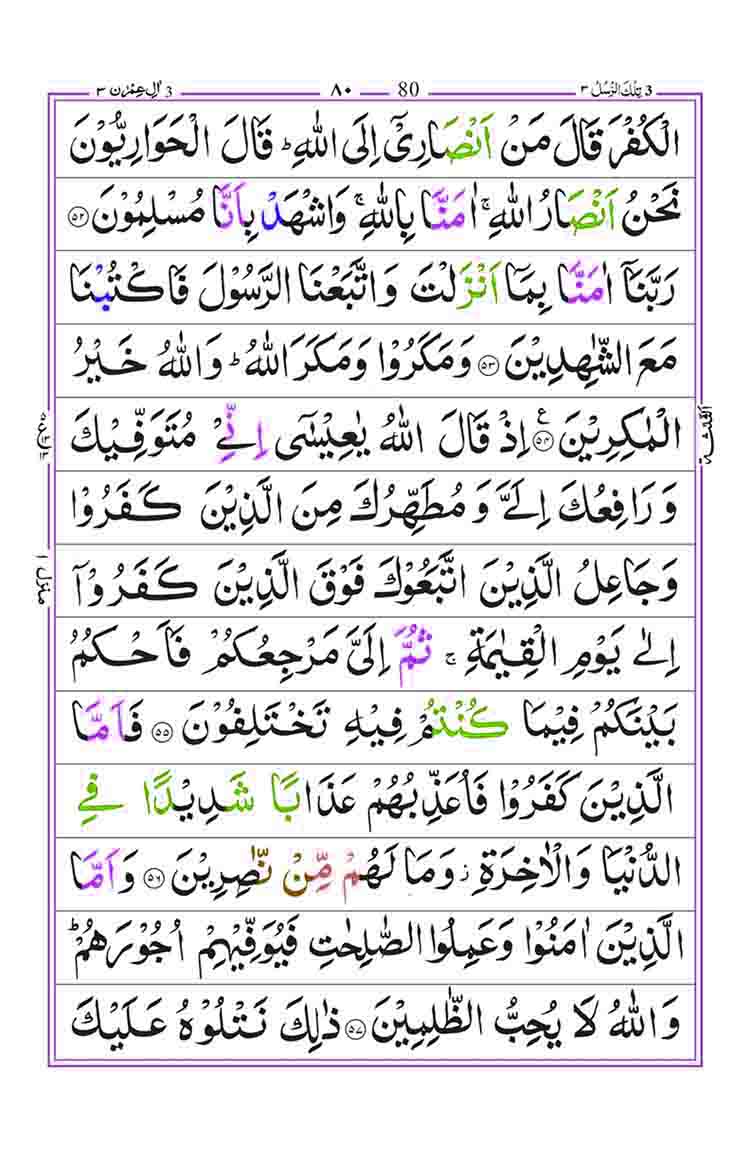 3 اٰلِ عِمْرٰن ٣ ٨٠ 80 3 تِلْكَ الرُّسُلُ ٣
الْكُفْرَ قَالَ مَنْ اَنْصَارِىْۤ اِلَى اللّٰهِؕ قَالَ الْحَوَارِيُّوْنَ
نَحْنُ اَنْصَارُ اللّٰهِۚ اٰمَنَّا بِاللّٰهِۚ وَاشْهَدْ بِاَنَّا مُسْلِمُوْنَ ﴿٥٢﴾
رَبَّنَاۤ اٰمَنَّا بِمَاۤ اَنْزَلْتَ وَاتَّبَعْنَا الرَّسُوْلَ فَاكْتُبْنَا
مَعَ الشّٰهِدِيْنَ ﴿٥٣﴾ وَمَكَرُوْا وَمَكَرَ اللّٰهُؕ وَاللّٰهُ خَيْرُ
الْمٰكِرِيْنَ ﴿٥٤﴾ ع اِذْ قَالَ اللّٰهُ يٰعِيْسٰۤى اِنِّىْ مُتَوَفِّيْكَ
وَ رَافِعُكَ اِلَىَّ وَ مُطَهِّرُكَ مِنَ الَّذِيْنَ كَفَرُوْا
وَجَاعِلُ الَّذِيْنَ اتَّبَعُوْكَ فَوْقَ الَّذِيْنَ كَفَرُوْۤا
اِلٰى يَوْمِ الْقِيٰمَةِۚ ثُمَّ اِلَىَّ مَرْجِعُكُمْ فَاَحْكُمُ
بَيْنَكُمْ فِيْمَا كُنْتُمْ فِيْهِ تَخْتَلِفُوْنَ ﴿٥٥﴾ فَاَمَّا
الَّذِيْنَ كَفَرُوْا فَاُعَذِّبُهُمْ عَذَابًا شَدِيْدًا فِى
الدُّنْيَا وَالْاٰخِرَةِؗ وَمَا لَهُمْ مِّنْ نّٰصِرِيْنَ ﴿٥٦﴾ وَاَمَّا
الَّذِيْنَ اٰمَنُوْا وَعَمِلُوا الصّٰلِحٰتِ فَيُوَفِّيْهِمْ اُجُوْرَهُمْؕ
وَاللّٰهُ لَا يُحِبُّ الظّٰلِمِيْنَ ﴿٥٧﴾ ذٰلِكَ نَتْلُوْهُ عَلَيْكَ
الثلثة
منزل ١